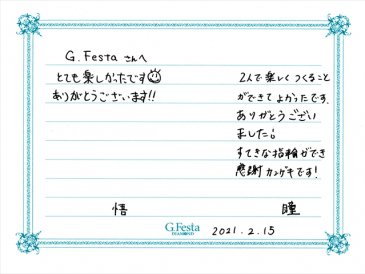 G.Festa さんへ
とても楽しかったです
ありがとうございます!!
2人で楽しくつくること
ができてよかったです。
ありがとうござい
ました。
すてきな指輪ができ
感謝カンゲキです!
悟
瞳
G.Festa
DIAMOND
2021.2.15